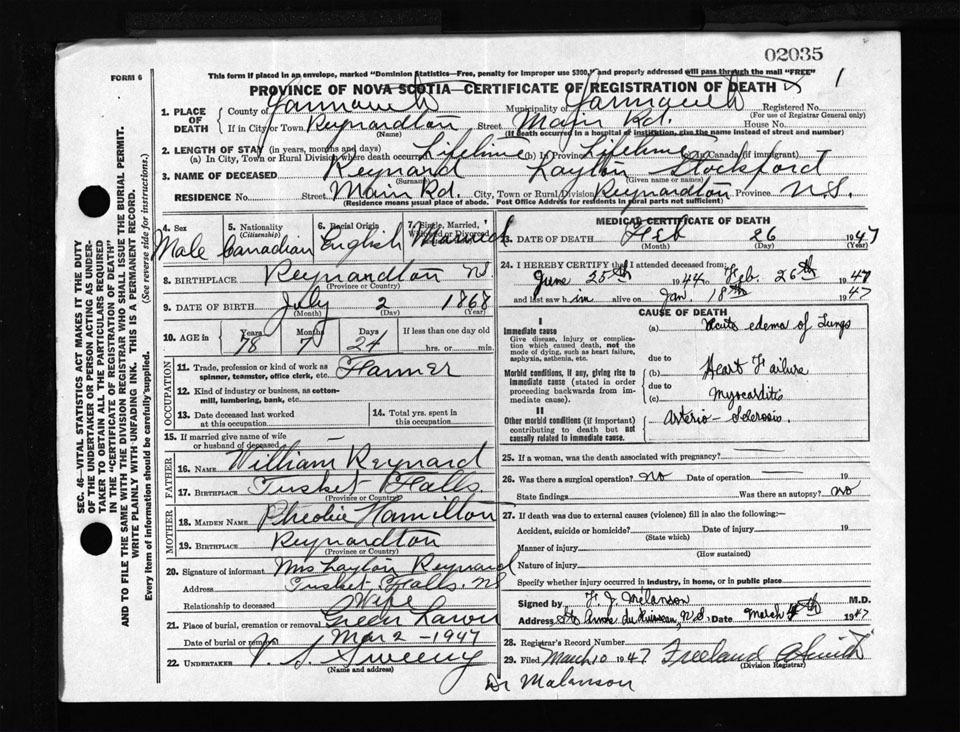 02035
FORM 6
This form if placed in an envelope, marked "Dominion Statistics—Free, penalty for improper use $300," and properly addressed will pass through the mail "FREE"
1
PROVINCE OF NOVA SCOTIA—CERTIFICATE OF REGISTRATION OF DEATH
1. PLACE OF DEATH County of Yarmouth Municipality of Yarmouth Registered No.
(For use of Registrar General only)
If in City or Town Reynardton Street Main Rd. House No.
(Name) (If death occurred in a hospital or institution, give the name instead of street and number)
2. LENGTH OF STAY (in years, months and days)
(a) In City, Town or Rural Division where death occurred Lifetime (b) In Province Lifetime (c) In Canada (if immigrant)
3. NAME OF DECEASED Reynard Layton Stockford
(Surname) (Given name or names)
RESIDENCE No. Street Main Rd. City, Town or Rural Division Reynardton Province N.S.
(Residence means usual place of abode. Post Office Address for residents in rural parts not sufficient)
4. Sex Male
5. Nationality (Citizenship) Canadian
6. Racial Origin English
7. Single, Married, Widowed or Divorced Married
8. BIRTHPLACE Reynardton N.S.
(Province or Country)
9. DATE OF BIRTH July 2 1868
(Month) (Day) (Year)
10. AGE in Years 78 Months 7 Days 24 If less than one day old
hrs. or min.
OCCUPATION
11. Trade, profession or kind of work as spinner, teamster, office clerk, etc. Farmer
12. Kind of industry or business, as cotton-mill, lumbering, bank, etc.
13. Date deceased last worked at this occupation
14. Total yrs. spent in this occupation
15. If married give name of wife or husband of deceased —
FATHER
16. NAME William Reynard
17. BIRTHPLACE Tusket Falls
(Province or Country)
MOTHER
18. MAIDEN NAME Pheobie Hamilton
19. BIRTHPLACE Reynardton
(Province or Country)
20. Signature of informant Mrs Layton Reynard
Address Tusket Falls. N.S
Relationship to deceased Wife
21. Place of burial, cremation or removal Green
Date of burial or removal Mar 2 - 1947
22. UNDERTAKER V. S. Sweeny
(Name and address)
MEDICAL CERTIFICATE OF DEATH
23. DATE OF DEATH Feb 26 1947
(Month) (Day) (Year)
24. I HEREBY CERTIFY that I attended deceased from:
June 25th 1944 to Feb. 26th 1947
and last saw him alive on Jan. 18th 1947
CAUSE OF DEATH
I
Immediate cause
Give disease, injury or complication which caused death, not the mode of dying, such as heart failure, asphyxia, asthenia, etc.
(a) Acute edema of Lungs
due to
Morbid conditions, if any, giving rise to immediate cause (stated in order proceeding backwards from immediate cause).
(b) Heart Failure
due to
(c) Myocarditis
II
Other morbid conditions (if important) contributing to death but not causally related to immediate cause.
Arterio-Sclerosis.
25. If a woman, was the death associated with pregnancy?
26. Was there a surgical operation? no Date of operation 19
State findings Was there an autopsy? no
27. If death was due to external causes (violence) fill in also the following:—
Accident, suicide or homicide? Date of injury 19
(State which)
Manner of injury
(How sustained)
Nature of injury
Specify whether injury occurred in industry, in home, or in public place
Signed by F. J. Melanson M.D.
Address Ste Anne du Ruisseau, N.S. Date March 1947
28. Registrar's Record Number
29. Filed March 10 1947 Freeland
(Division Registrar)
Dr Malanson
SEC. 46—VITAL STATISTICS ACT MAKES IT THE DUTY OF THE UNDERTAKER OR PERSON ACTING AS UNDERTAKER TO OBTAIN ALL THE PARTICULARS REQUIRED IN THE "CERTIFICATE OF REGISTRATION OF DEATH"
AND TO FILE THE SAME WITH THE DIVISION REGISTRAR WHO SHALL ISSUE THE BURIAL PERMIT.
WRITE PLAINLY WITH UNFADING INK. THIS IS A PERMANENT RECORD.
Every item of information should be carefully supplied. (See reverse side for instructions.)